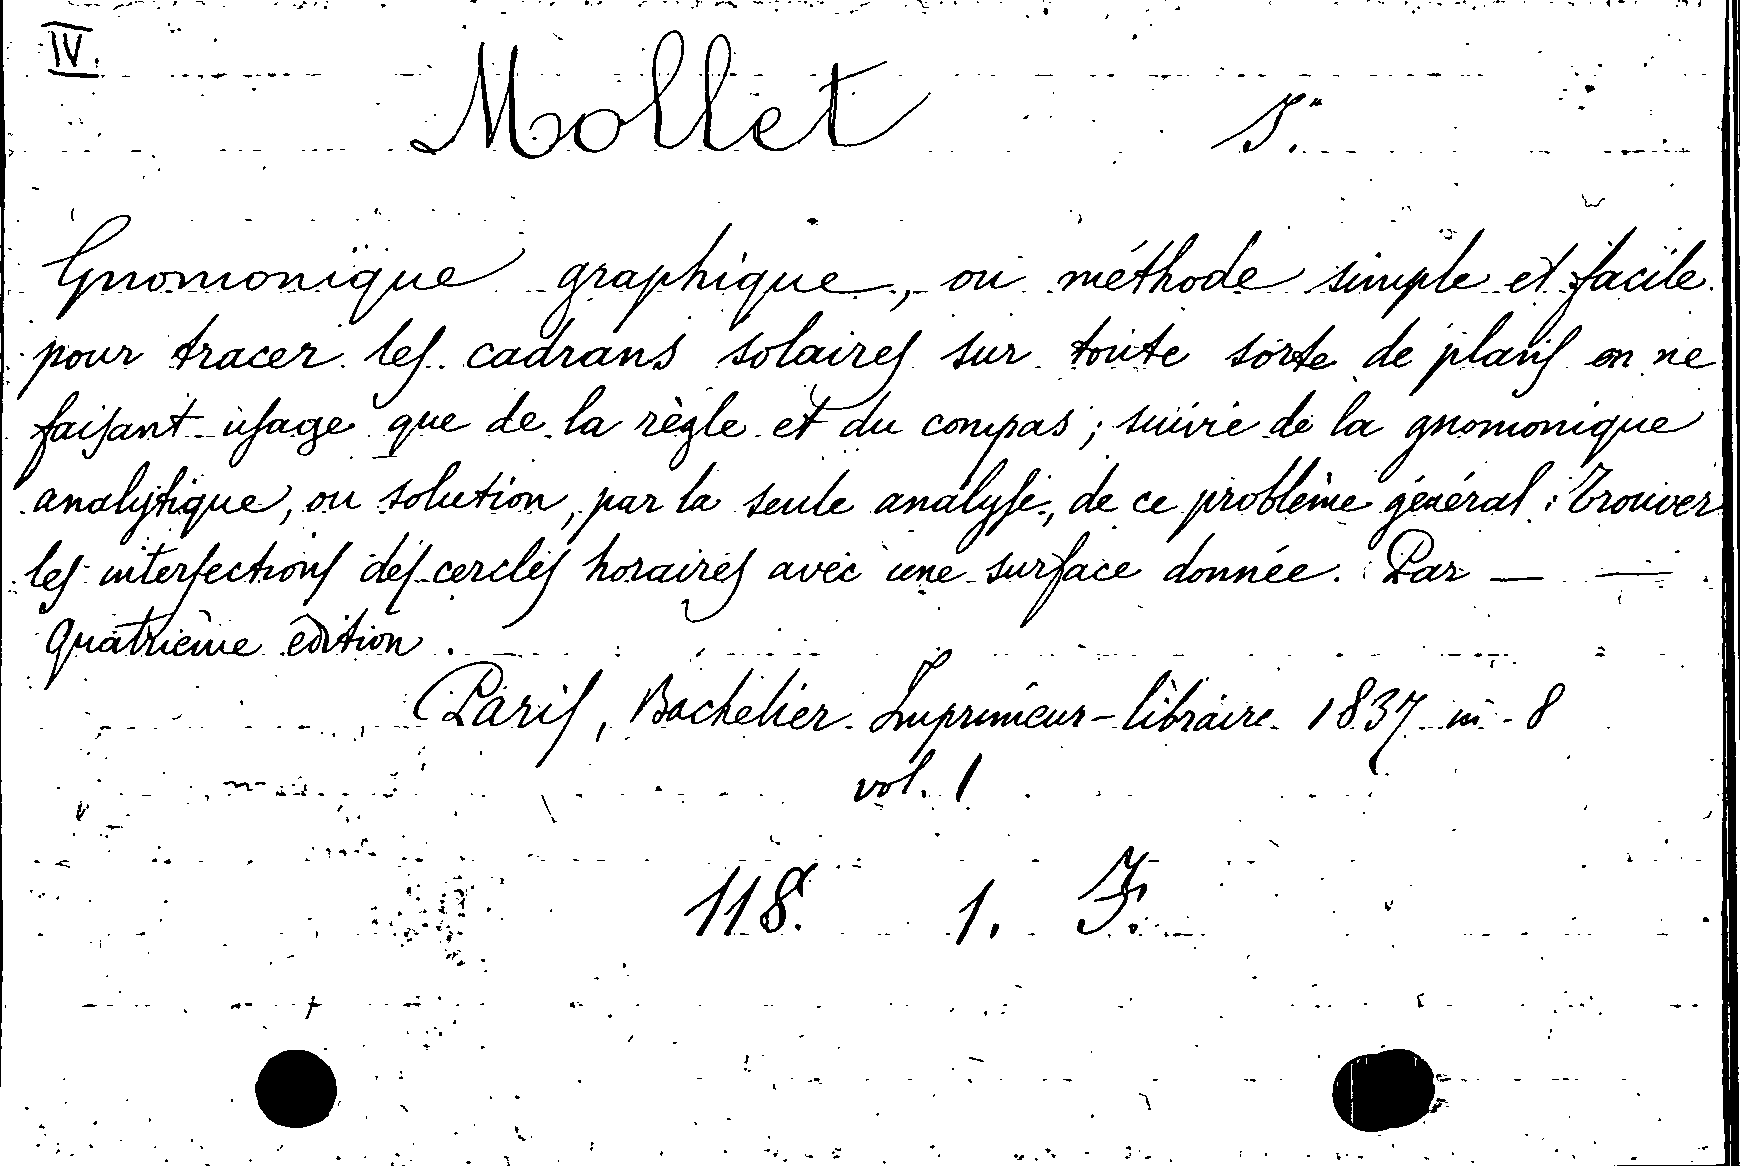 IV.
Mollet J.
Gnomonique graphique, ou méthode simple et facile
pour tracer les cadrans solaires sur toute sorte de plans en ne
faisant usage que de la règle et du compas; suivie de la gnomonique
analytique, ou solution, par la seule analyse, de ce problème général: Trouver
les intersections des cercles horaires avec une surface donnée. Par — —
Quatrième édition.
Paris, Bachelier Imprimeur-libraire 1837 in-8
vol. 1
118. 1. F.